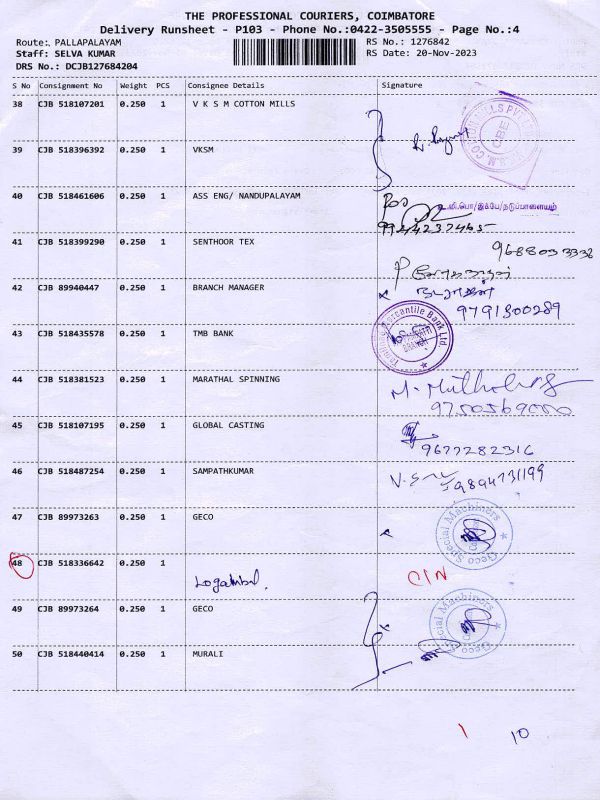 THE PROFESSIONAL COURIERS, COIMBATORE
Delivery Runsheet - P103 - Phone No.:0422-3505555 - Page No.:4
Route: PALLAPALAYAM RS No.: 1276842
Staff: SELVA KUMAR RS Date: 20-Nov-2023
DRS No.: DCJB127684204
S No Consignment No Weight PCS Consignee Details Signature
38 CJB 518107201 0.250 1 V K S M COTTON MILLS
39 CJB 518396392 0.250 1 VKSM
40 CJB 518461606 0.250 1 ASS ENG/ NANDUPALAYAM
9944237465
41 CJB 518399290 0.250 1 SENTHOOR TEX 9688033336
42 CJB 89940447 0.250 1 BRANCH MANAGER
9791300289
43 CJB 518435578 0.250 1 TMB BANK Tamilnad Mercantile Bank Ltd.
44 CJB 518381523 0.250 1 MARATHAL SPINNING
45 CJB 518107195 0.250 1 GLOBAL CASTING
9677282316
46 CJB 518487254 0.250 1 SAMPATHKUMAR 9894731199
47 CJB 89973263 0.250 1 GECO Geco Special Machiners
48 CJB 518336642 0.250 1 CIN
Logambal.
49 CJB 89973264 0.250 1 GECO Geco Special Machiners
50 CJB 518440414 0.250 1 MURALI
1 10